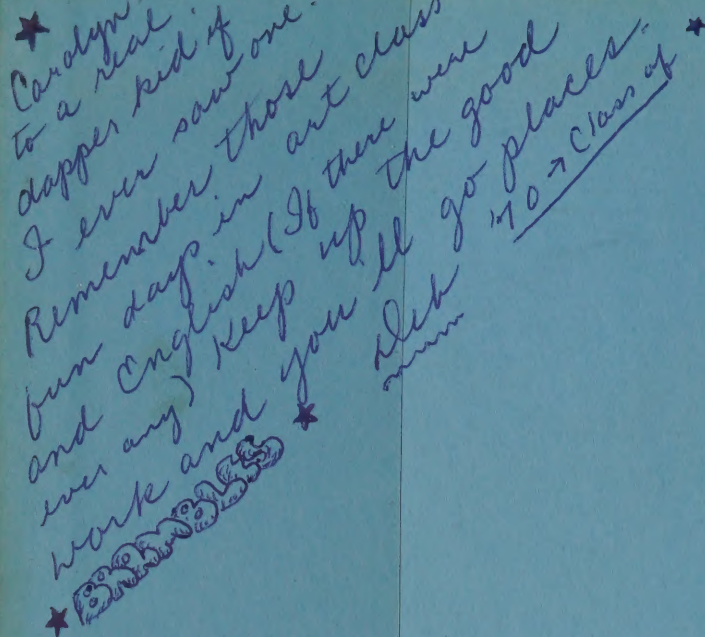 Carolyn
to a real
dapper kid if
I ever saw one.
Remember those
fun days in art class
and English (If there were
ever any) Keep up the good
work and you'll go places.
Deb
'70 → Class of